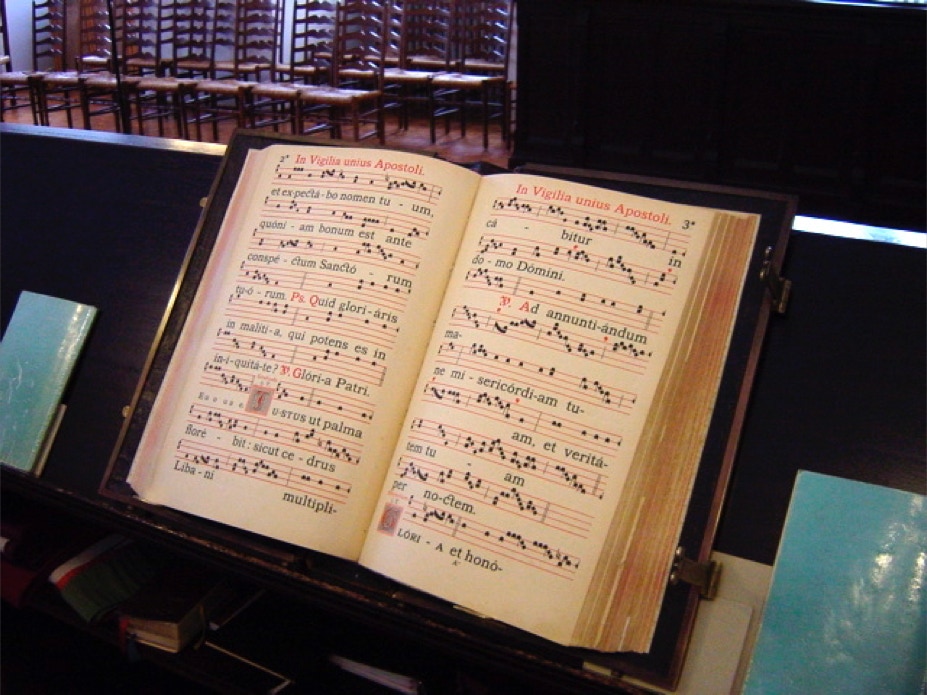 2*
In Vigilia unius Apostoli.
et ex-pectá-bo nomen tu - um,
quóni - am bonum est ante
conspé - ctum Sanctó - rum
tu-ó - rum. Ps. Quid glori-áris
in malíti-a, qui potens es in
in-i-quitá-te? ℣. Glóri-a Patri.
E u o u a e.
J U-STUS ut palma
floré - bit : sicut ce - drus
Líba - ni
multipli-
In Vigilia unius Apostoli.
3*
cá - bitur in
do - mo Dómini.
℣. Ad annunti-ándum
ma-
ne mi - sericórdi-am tu-
am, et veritá-
tem tu - am
per no-ctem.
G LÓRI - A et honó-